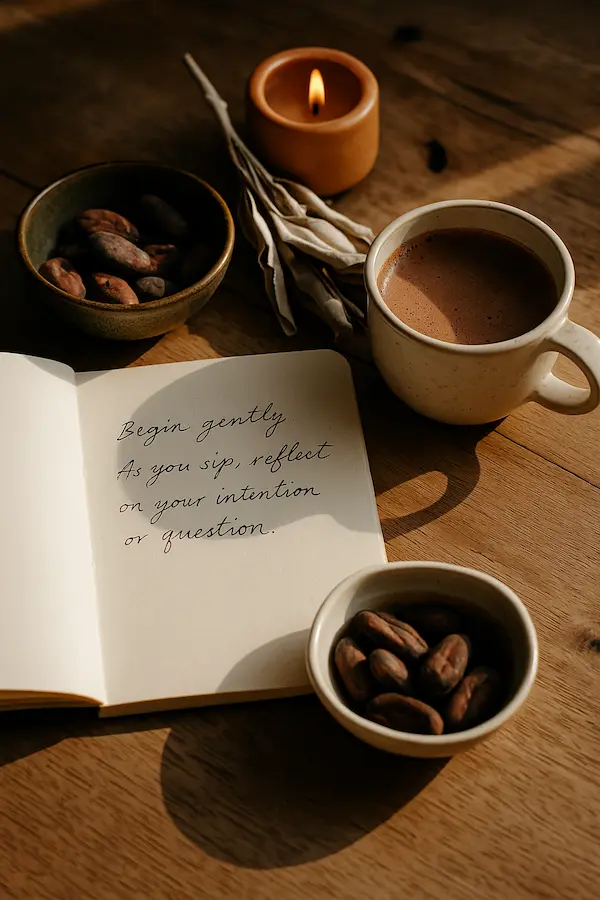 Begin gently
As you sip, reflect
on your intention
or question.